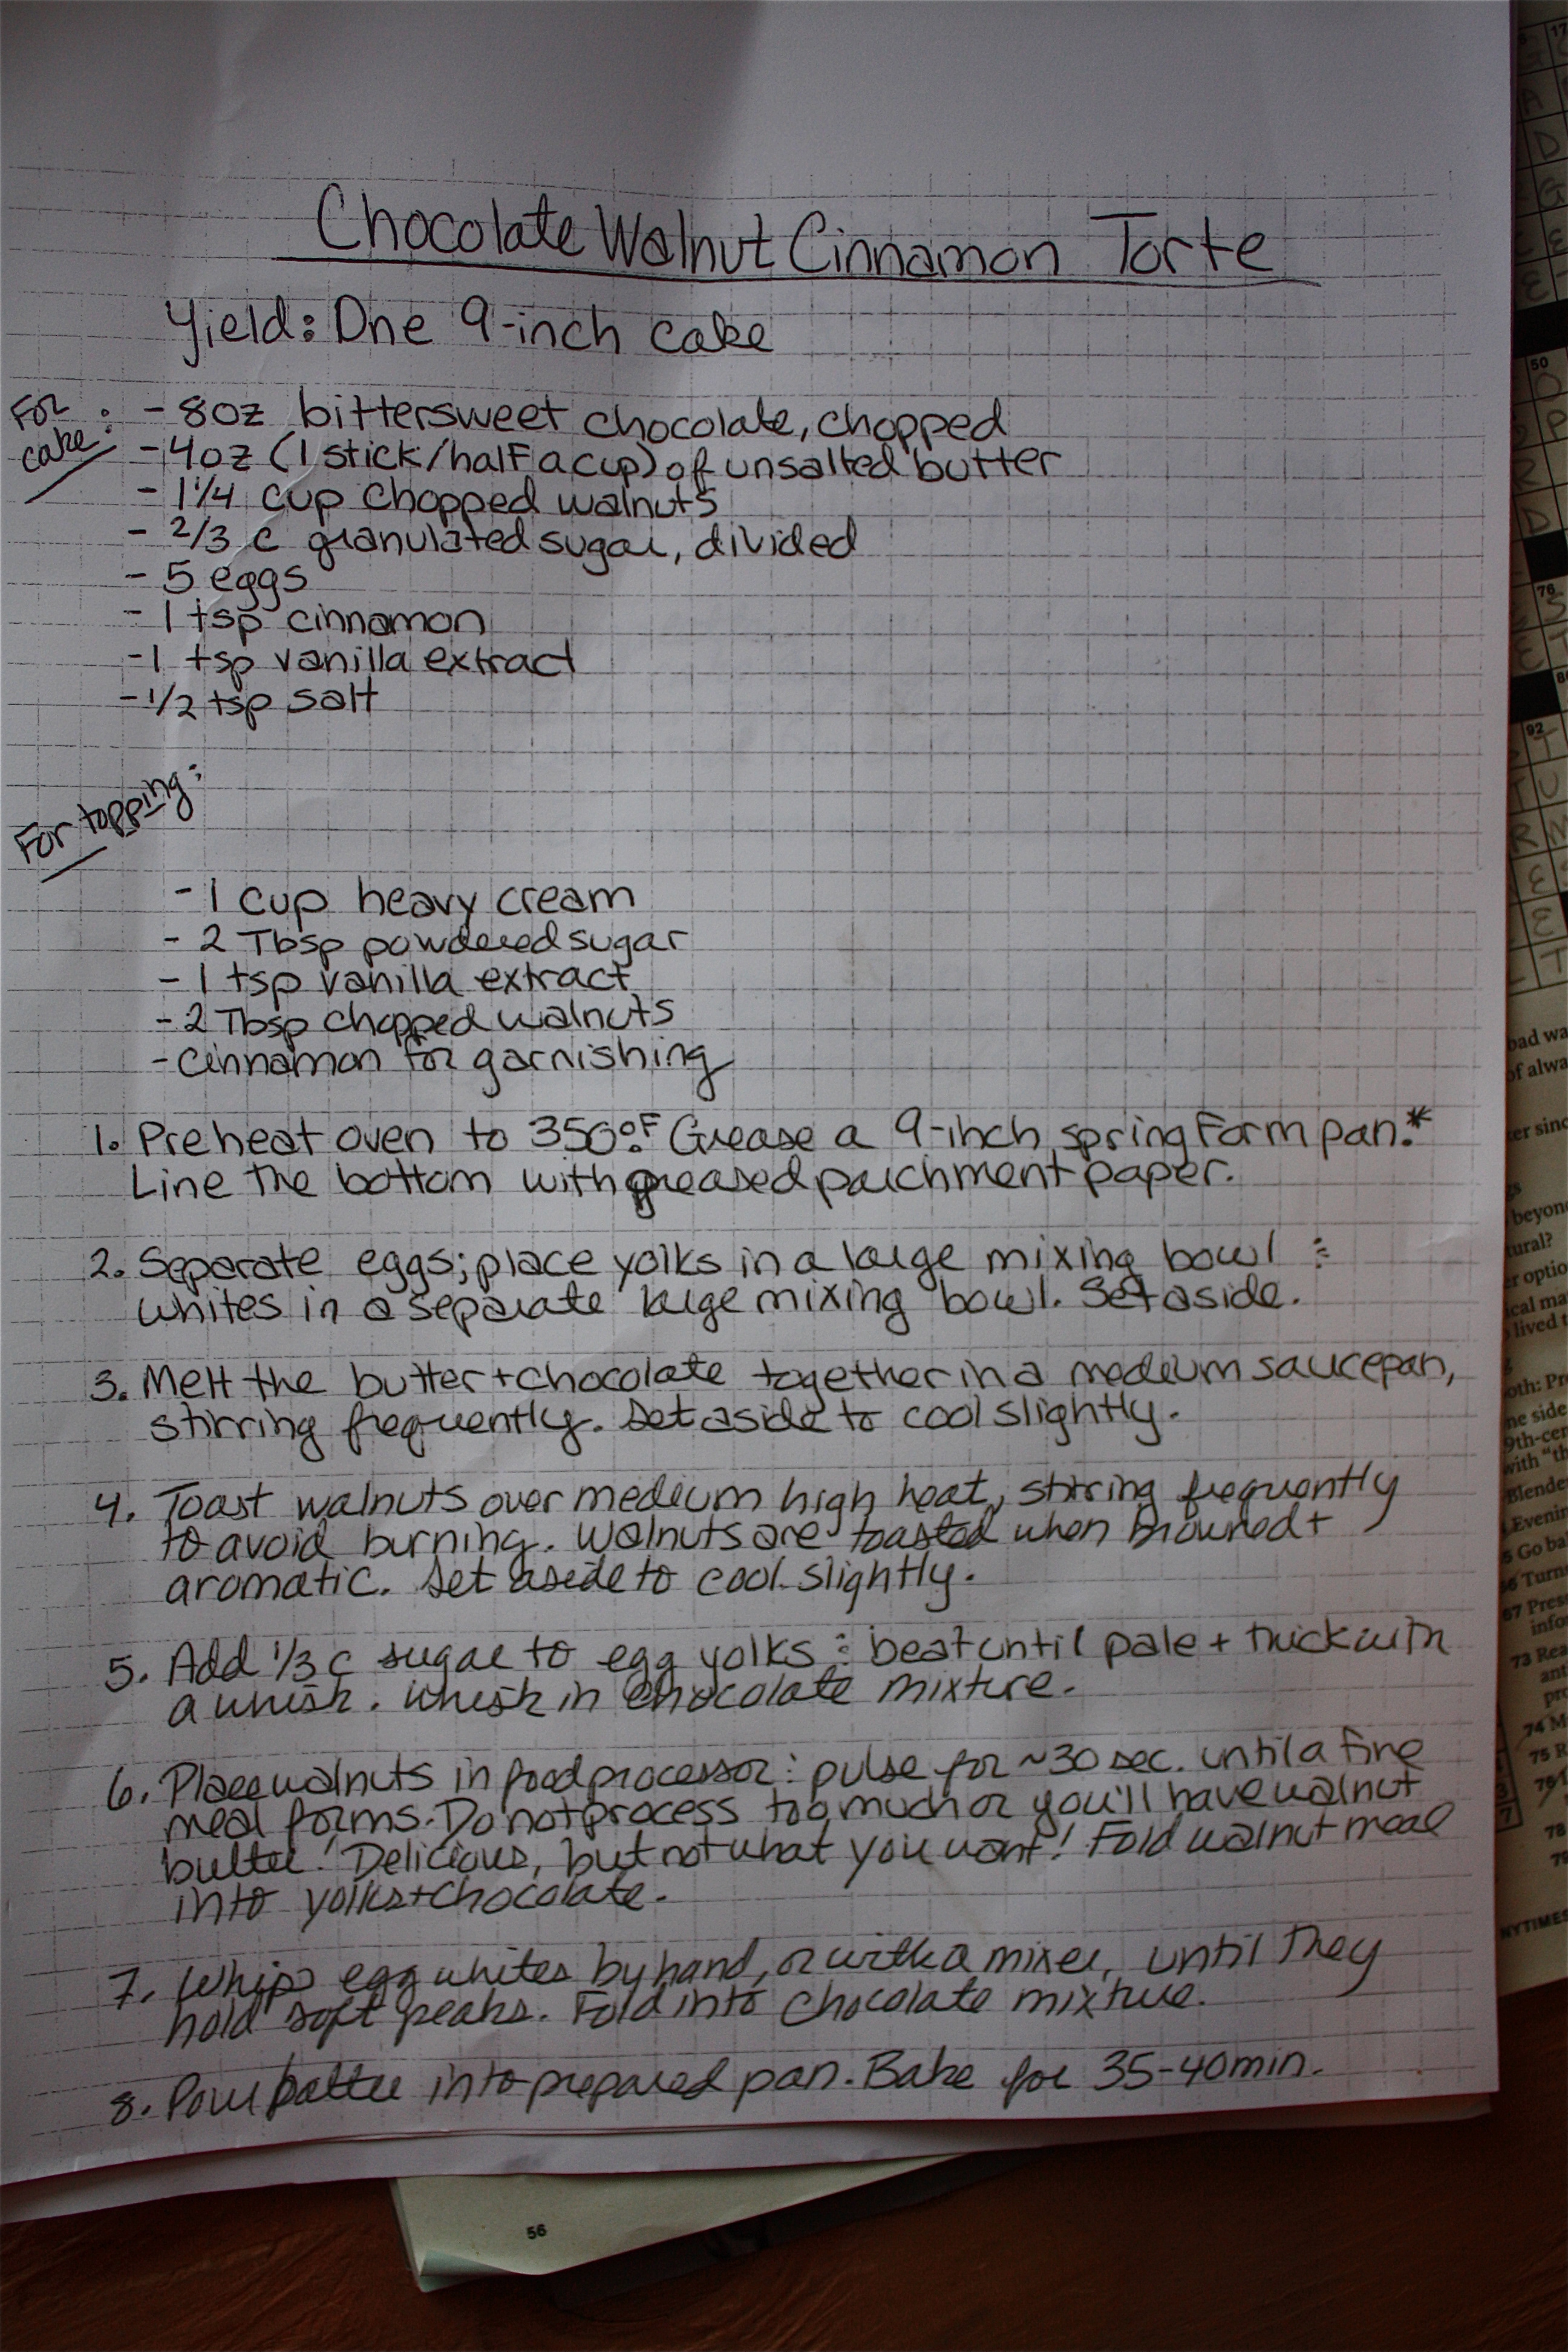 Chocolate Walnut Cinnamon Torte
Yield: One 9-inch cake
For cake:
- 8oz bittersweet chocolate, chopped
- 4oz (1 stick/half a cup) of unsalted butter
- 1 1/4 cup chopped walnuts
- 2/3 c granulated sugar, divided
- 5 eggs
- 1 tsp cinnamon
- 1 tsp vanilla extract
- 1/2 tsp salt
For topping:
- 1 cup heavy cream
- 2 Tbsp powdered sugar
- 1 tsp vanilla extract
- 2 Tbsp chopped walnuts
- cinnamon for garnishing
1. Preheat oven to 350°F. Grease a 9-inch springform pan.*
Line the bottom with greased parchment paper.
2. Separate eggs; place yolks in a large mixing bowl ÷
whites in a separate large mixing bowl. Set aside.
3. Melt the butter + chocolate together in a medium saucepan,
stirring frequently. Set aside to cool slightly.
4. Toast walnuts over medium high heat, stirring frequently
to avoid burning. Walnuts are toasted when browned +
aromatic. Set aside to cool slightly.
5. Add 1/3 c sugar to egg yolks ÷ beat until pale + thick with
a whisk. Whisk in chocolate mixture.
6. Place walnuts in food processor ÷ pulse for ~30 sec. until a fine
meal forms. Do not process too much or you'll have walnut
butter! Delicious, but not what you want! Fold walnut meal
into yolks + chocolate.
7. Whip egg whites by hand, or with a mixer, until they
hold soft peaks. Fold into chocolate mixture.
8. Pour batter into prepared pan. Bake for 35-40 min.
56
50
76
92
bad
of
beyond
tural?
lived
oth:
ne side
9th-cen
with "th
Go
Turn
67 Press
73
74
75
78
NYTIMES